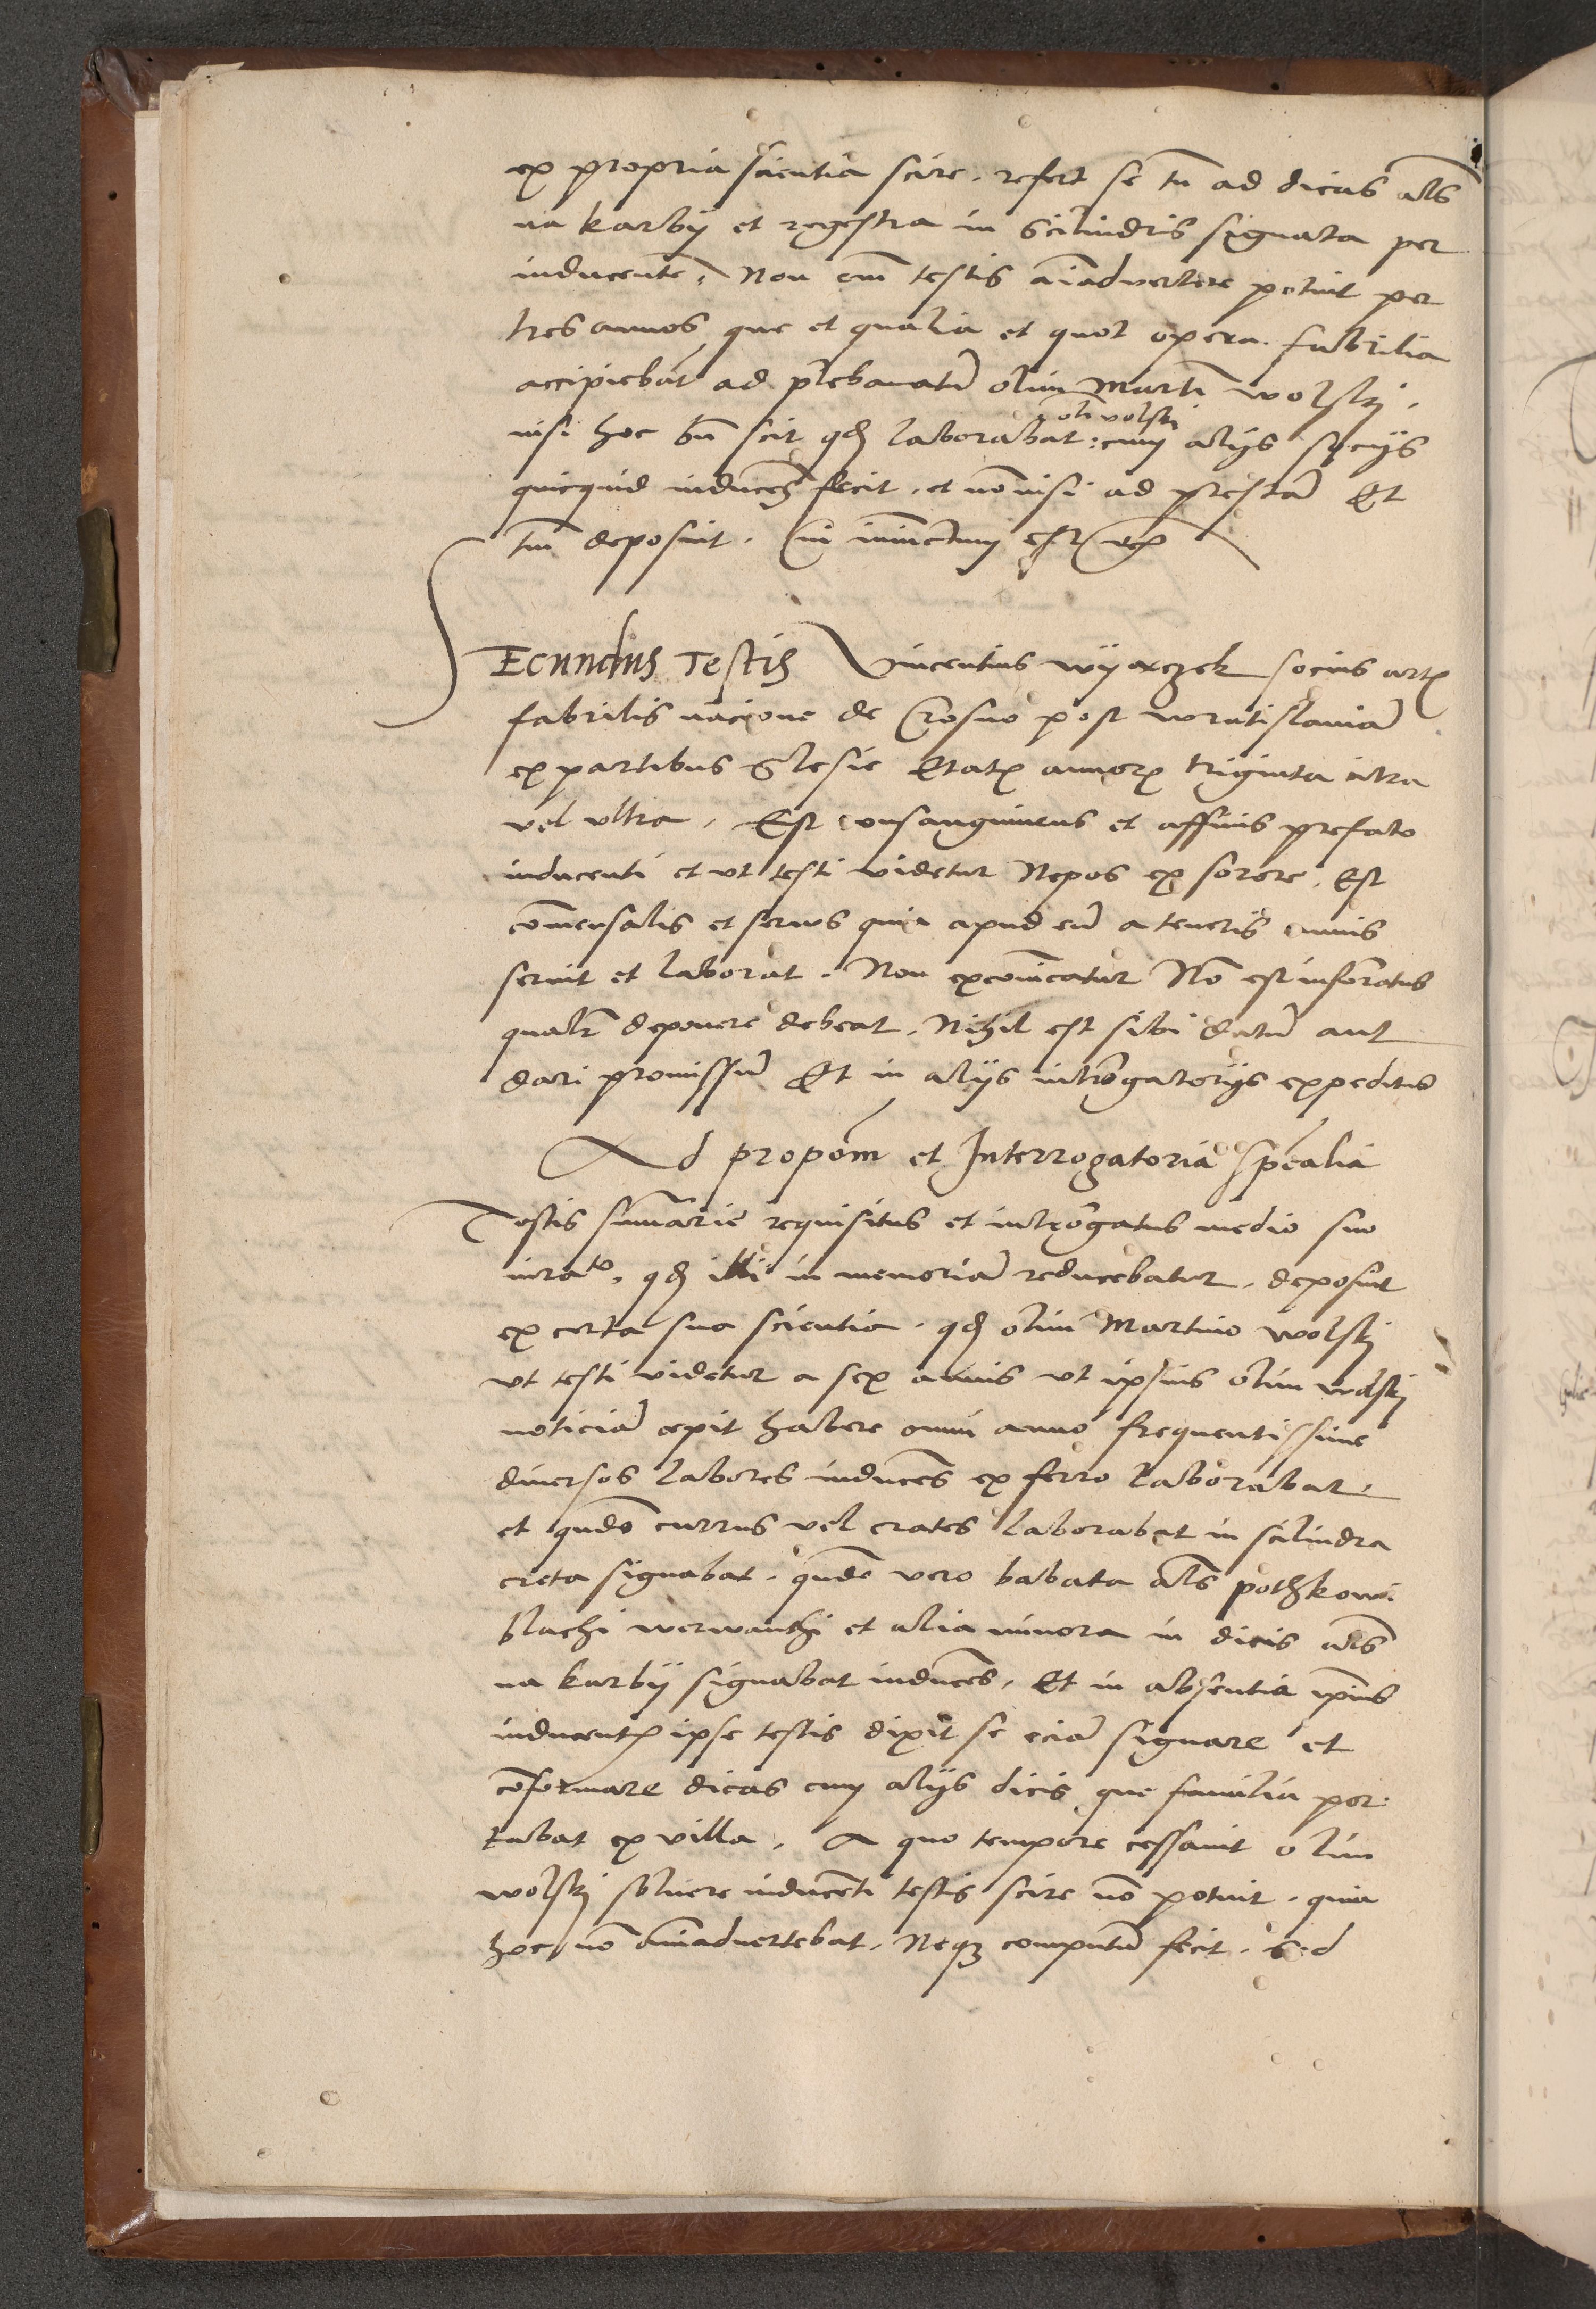 ex propria scientia scire. refert se tn ad dicas als
na karby et regestra in scilindris signata per
inducente. Non em testis aiadvertere potuit per
tres annos que et qualia et quot opera fabrilia
accipiebat ad plebanatu olim Marti wolski.
oli volski
nisi hoc bn scit qd laborabat cum alijs socijs
quicquid inducens fecit. et no nisi ad presta Et
tm deposuit. Cui iniunctum est
SEcundus Testis Vincentius wyerczek socius artis
fabrilis nacione de Crosno post wratislauia
ex partibus Slesie Etatis annorum triginta citra
vel vltra. Est consanguineus et affinis prefato
inducenti et vt testi videtur Nepos ex sorore. Est
comensalis et seruus quia apud eu a teneris annis
seruit et laborat. Non excoicatur No est informatus
qualr deponere debeat. Nihil est sibi datu aut
dari promissu Et in alijs introgatorijs expeditus
Ad propom et Interrogatoria spealia
Testis sumarie requisitus et introgatus medio suo
iurato. qd illi in memoria reducebatur. deposuit
ex certa sua scientia. qd olim Martino wolski
vt testi videtur a sex annis vt ipsius olim wolski
noticia cepit habere omni anno frequentissime
diuersos labores inducens ex ferro laborabat.
et qndo currus vel crates laborabat in scilindra
creta signabat. qndo vero babata als pothkowi
blachi werwanthi et alia minora in dicis als
na karby signabat inducens. Et in absentia ipius
inducentis ipse testis dixit se ecia signare et
conformare dicas cum alijs dicis que familia por
tabat ex villa. A quo tempore cessauit olim
wolski soluere inducenti testis scire no potuit. quia
hoc no aiaduertebat. Neqz computu fecit. Sed